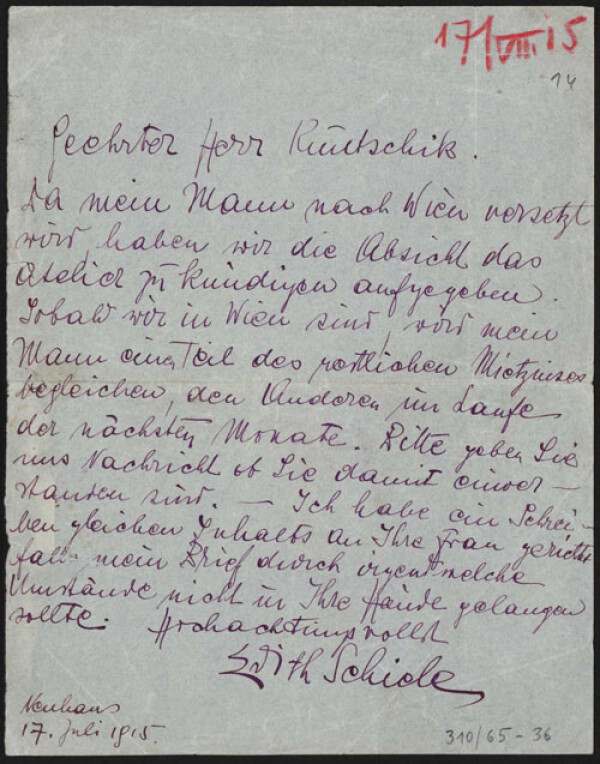 17/VIII.15
14
Geehrter Herr Kuntschik.
Da mein Mann nach Wien versetzt
wird haben wir die Absicht das
Atelier zu kündigen aufgegeben.
Sobald wir in Wien sind, wird mein
Mann einen Teil des restlichen Mietzinses
begleichen, den Anderen im Laufe
der nächsten Monate. Bitte geben Sie
uns Nachricht ob Sie damit einver-
standen sind. – Ich habe ein Schrei-
ben gleichen Inhalts an Ihre Frau gerichtet
falls mein Brief durch irgentwelche
Umstände nicht in Ihre Hände gelangen
sollte. Hochachtungsvollst
Edith Schiele
Neuhaus
17. Juli 1915.
310/65-36